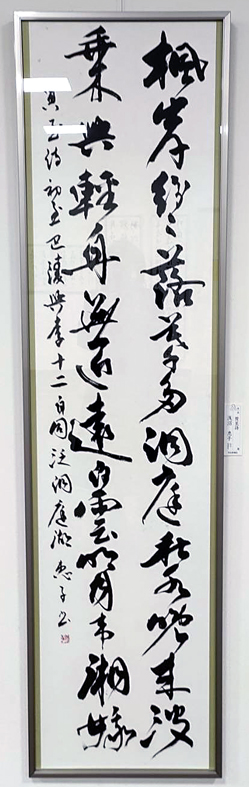 楓岸紛々落葉多洞庭秋水晩来波
乗興軽舟無近遠白雲明月弔湘娥
賈至詩初至巴陵與李十二白同泛洞庭湖 恵子書